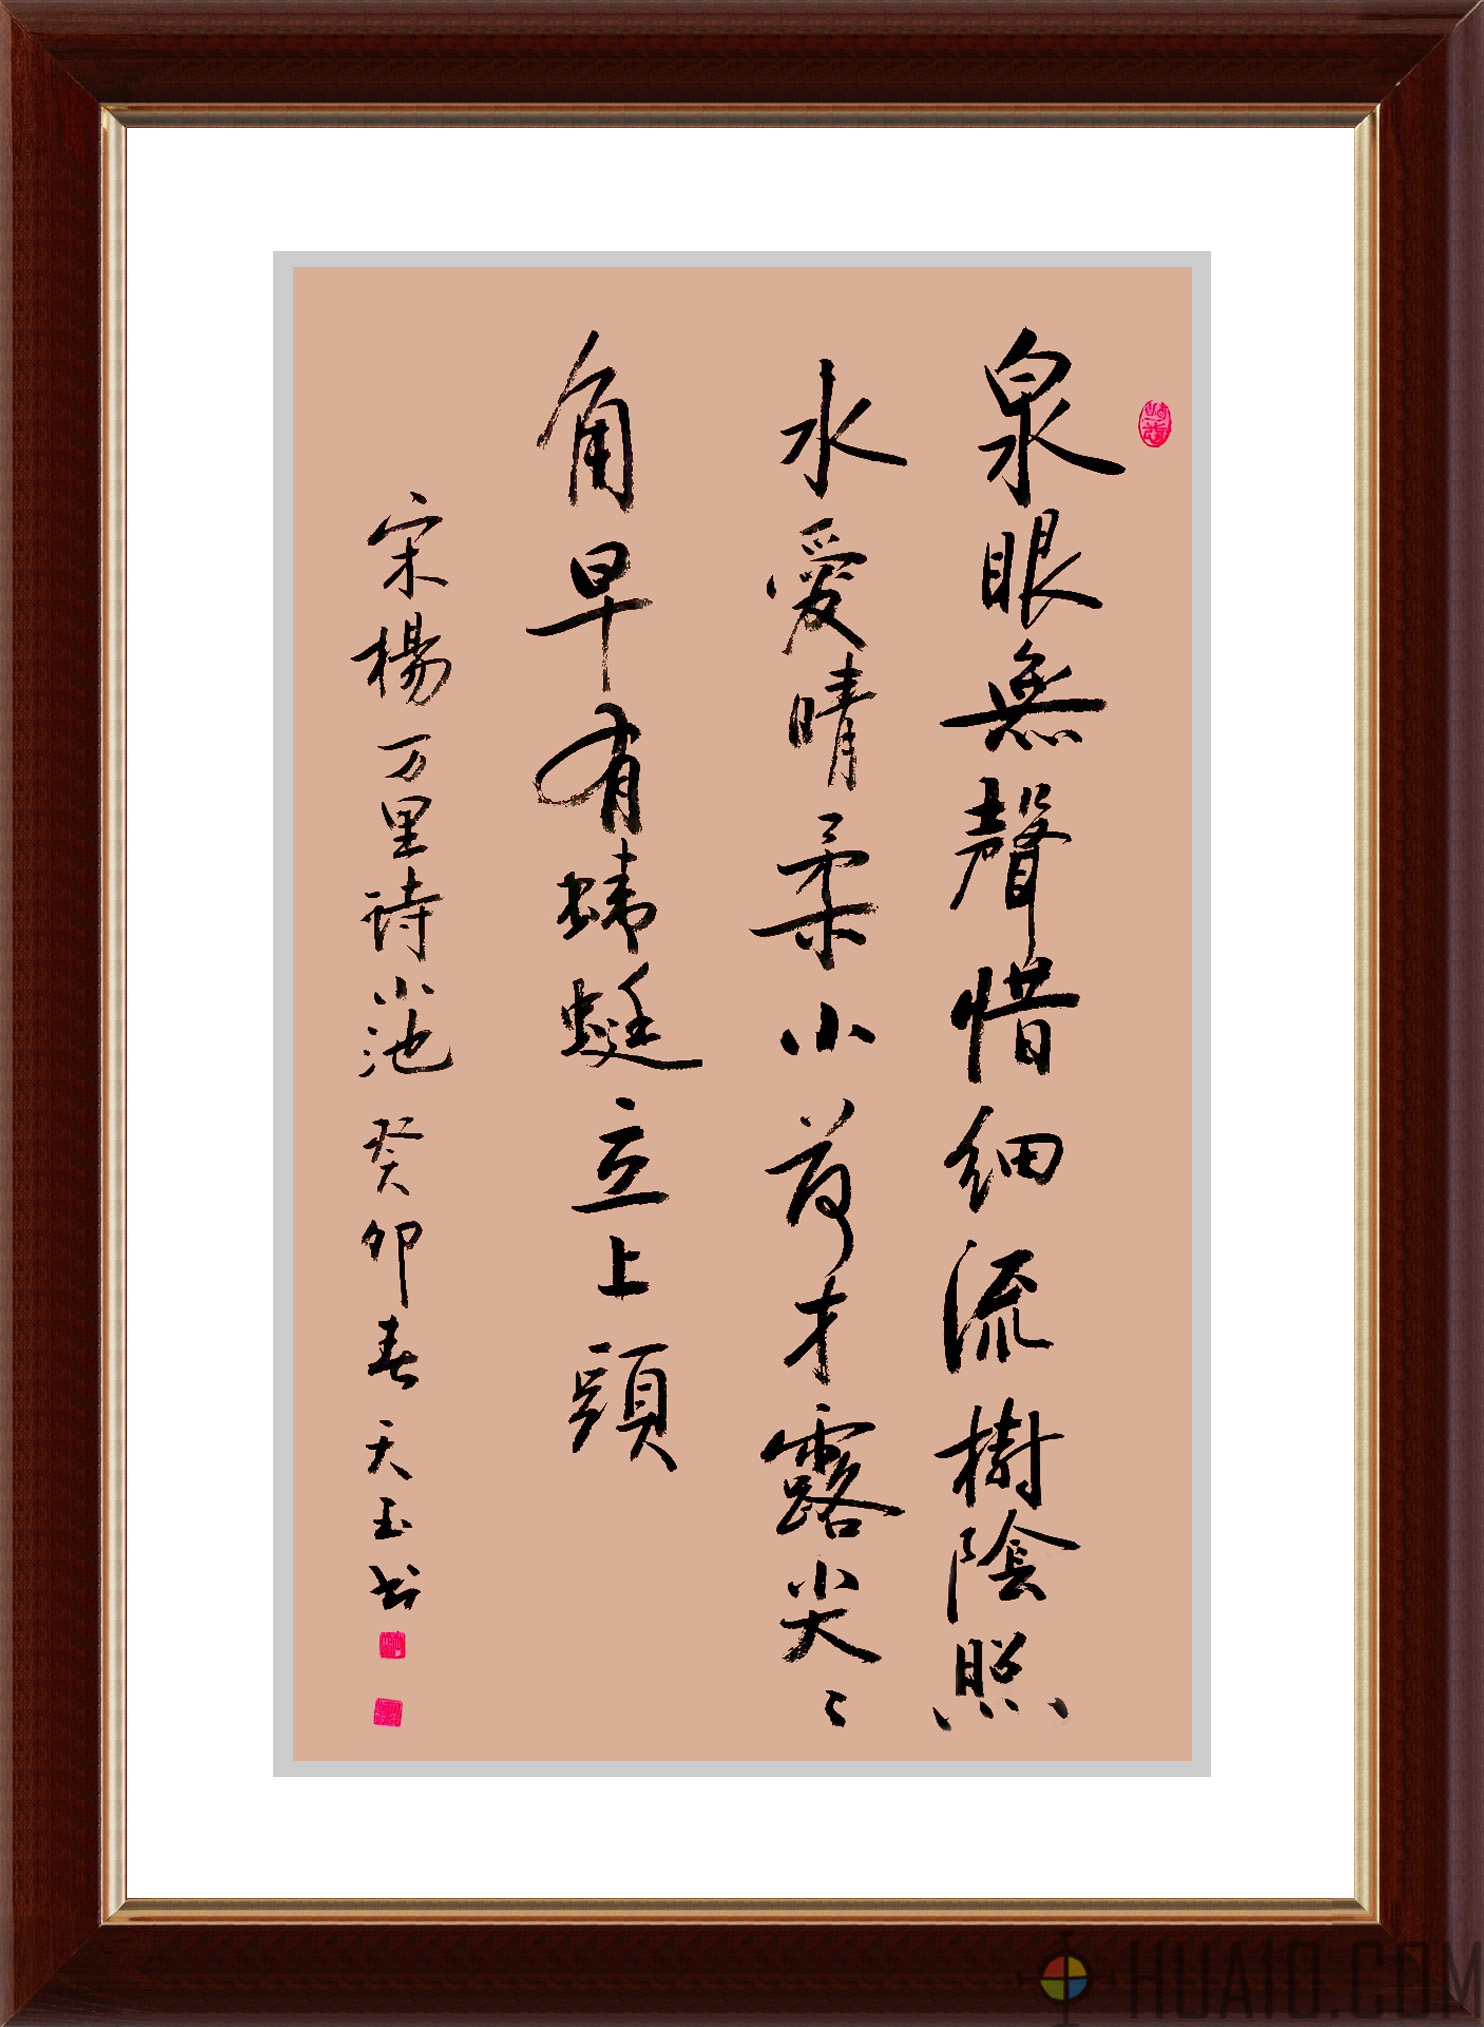 泉眼無聲惜細流樹陰照
水愛晴柔小荷才露尖〻
角早有蜻蜓立上頭
宋楊万里詩小池 癸卯春天玉书
HUA10.COM